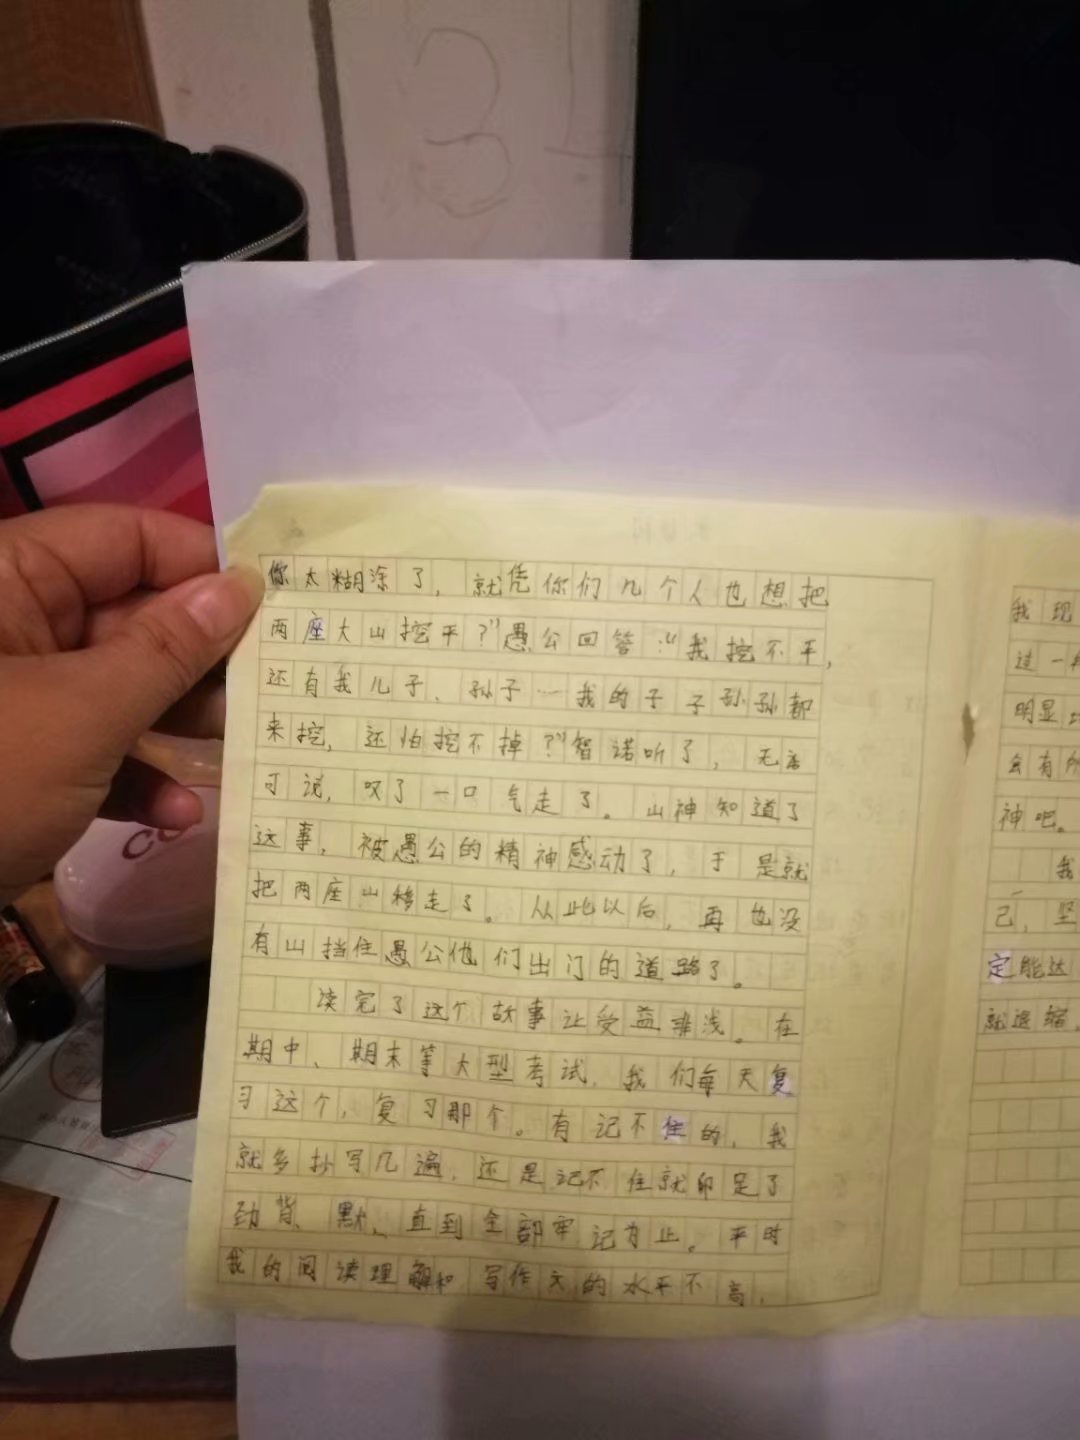 你太糊涂了，就凭你们几个人也想把
两座大山挖平？”愚公回答：“我挖不平，
还有我儿子、孙子……我的子子孙孙都
来挖，还怕挖不掉？”智诺听了，无言
可说，叹了一口气走了。山神知道了
这事，被愚公的精神感动了，于是就
把两座山移走了。从此以后，再也没
有山挡住愚公他们出门的道路了。
读完了这个故事让受益非浅。在
期中、期末等大型考试，我们每天复
习这个，复习那个。有记不住的，我
就多抄写几遍，还是记不住就卯足了
劲背、默、直到全部牢记为止。平时
我的阅读理解和写作文的水平不高，
我现
过一
明显
会有所
神吧。
我
己，坚
定能达
就退缩，